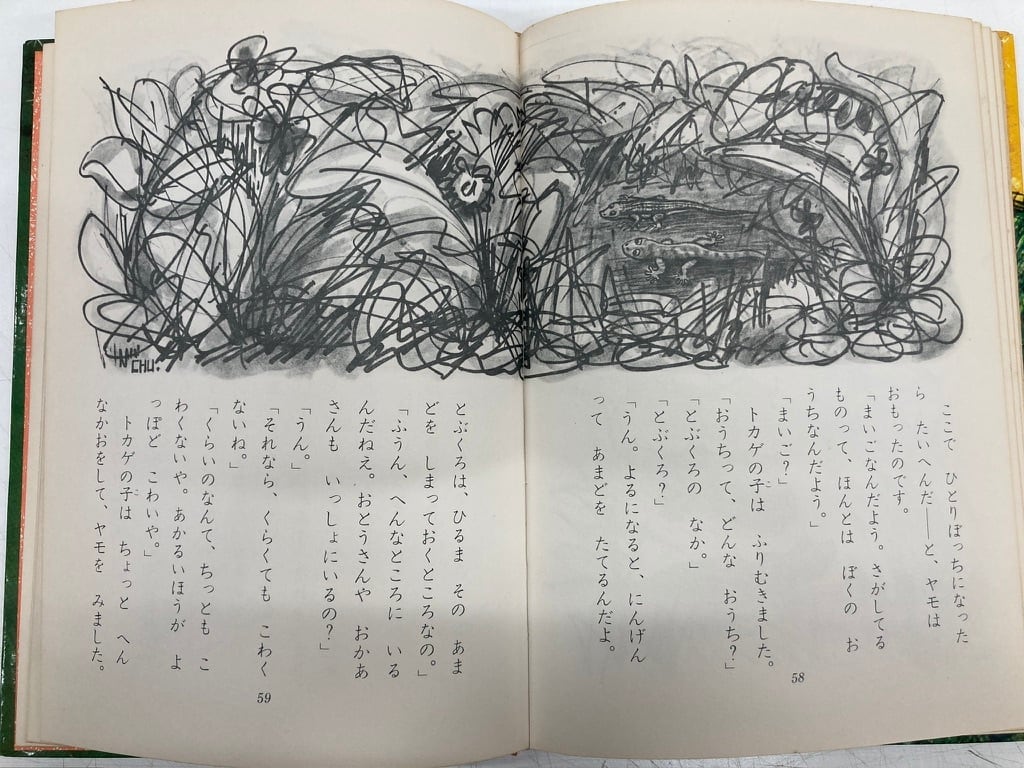 ここで　ひとりぼっちになった
ら　たいへんだ――と、ヤモは
おもったのです。
「まいごなんだよう。さがしてる
ものって、ほんとは　ぼくの　お
うちなんだよう。」
「まいご？」
トカゲの子は　ふりむきました。
「おうちって、どんな　おうち？」
「とぶくろの　なか。」
「とぶくろ？」
「うん。よるになると、にんげん
って　あまどを　たてるんだよ。
58
とぶくろは、ひるま　その　あま
どを　しまっておくところなの。」
「ふうん、へんなところに　いる
んだねえ。おとうさんや　おかあ
さんも　いっしょにいるの？」
「うん。」
「それなら、くらくても　こわく
ないね。」
「くらいのなんて、ちっとも　こ
わくないや。あかるいほうが　よ
っぽど　こわいや。」
トカゲの子は　ちょっと　へん
なかおをして、ヤモを　みました。
59
CHU.